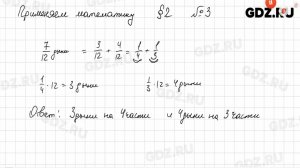 GDZ.RU
Применяем математику §2 №3
7/12 дыни = 3/12 + 4/12 = 1/4 + 1/3
1/4 · 12 = 3 дыни 1/3 · 12 = 4 дыни
Ответ: 3 дыни на 4 части и 4 дыни на 3 части